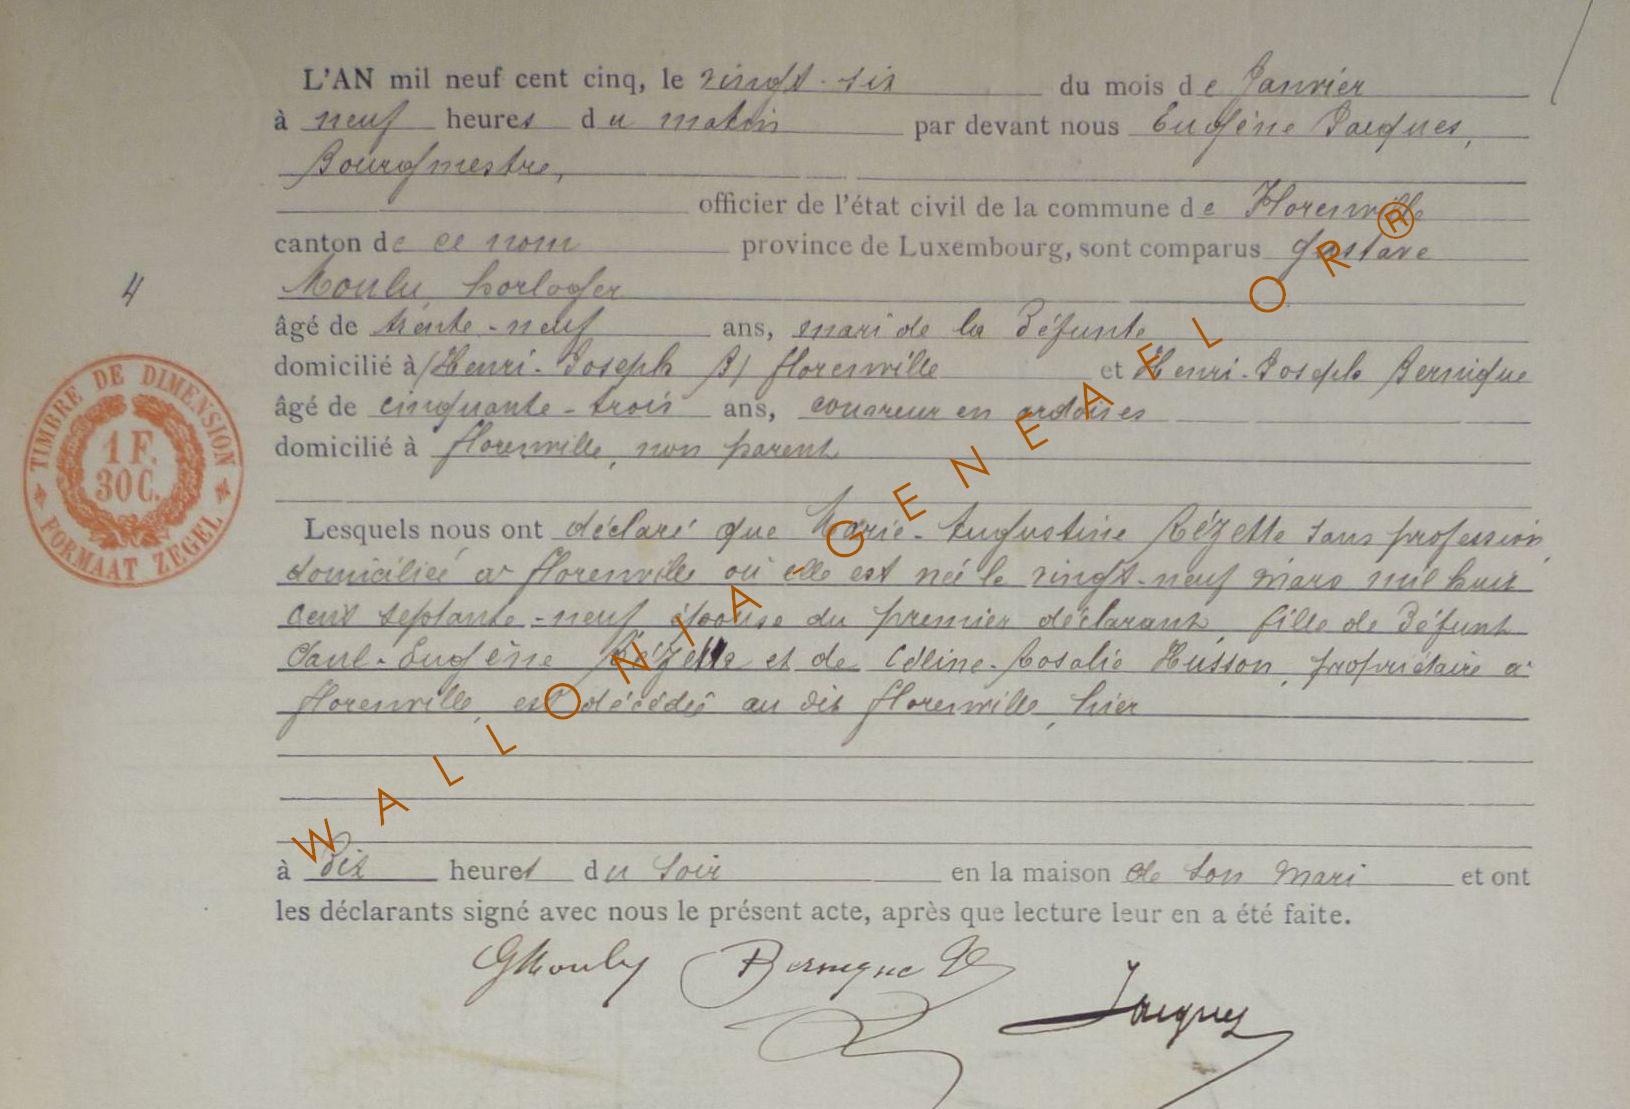 L'AN mil neuf cent cinq, le vingt-six du mois de Janvier
à neuf heures du matin par devant nous Eugène Jacques,
Bourgmestre,
officier de l'état civil de la commune de Florenville
canton de ce nom province de Luxembourg, sont comparus Gustave
4
Moulu, horloger
âgé de trente-neuf ans, mari de la défunte
domicilié à (Henri-Joseph B) florenville et Henri-Joseph Bernique
âgé de cinquante-trois ans, couvreur en ardoises
domicilié à florenville, non parent
Lesquels nous ont déclaré que Marie-Augustine Rézette sans profession,
domiciliée à florenville où elle est née le vingt-neuf mars mil huit
cent septante-neuf épouse du premier déclarant, fille de défunt
Paul-Eugène Rézette et de Céline-Rosalie Husson, propriétaire à
florenville, est décédée au dit florenville, hier
à dix heures du soir en la maison de son mari et ont
les déclarants signé avec nous le présent acte, après que lecture leur en a été faite.
GMoulu Bernique H Jacques
TIMBRE DE DIMENSION
1 F.
30 C.
FORMAAT ZEGEL
WALLONIA-GENEALOR®